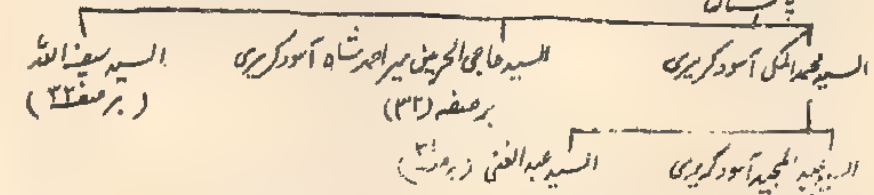 السید محمد المکی آسود کریری السید حاجی الحرمین میر احمد شاہ آسود کریری السید سیف اللہ
بر صفہ (۳۲) (بر صفہ ۳۲)
السید عبد المجید آسود کریری السید عبد الغنی (بر صفہ ۳۱)